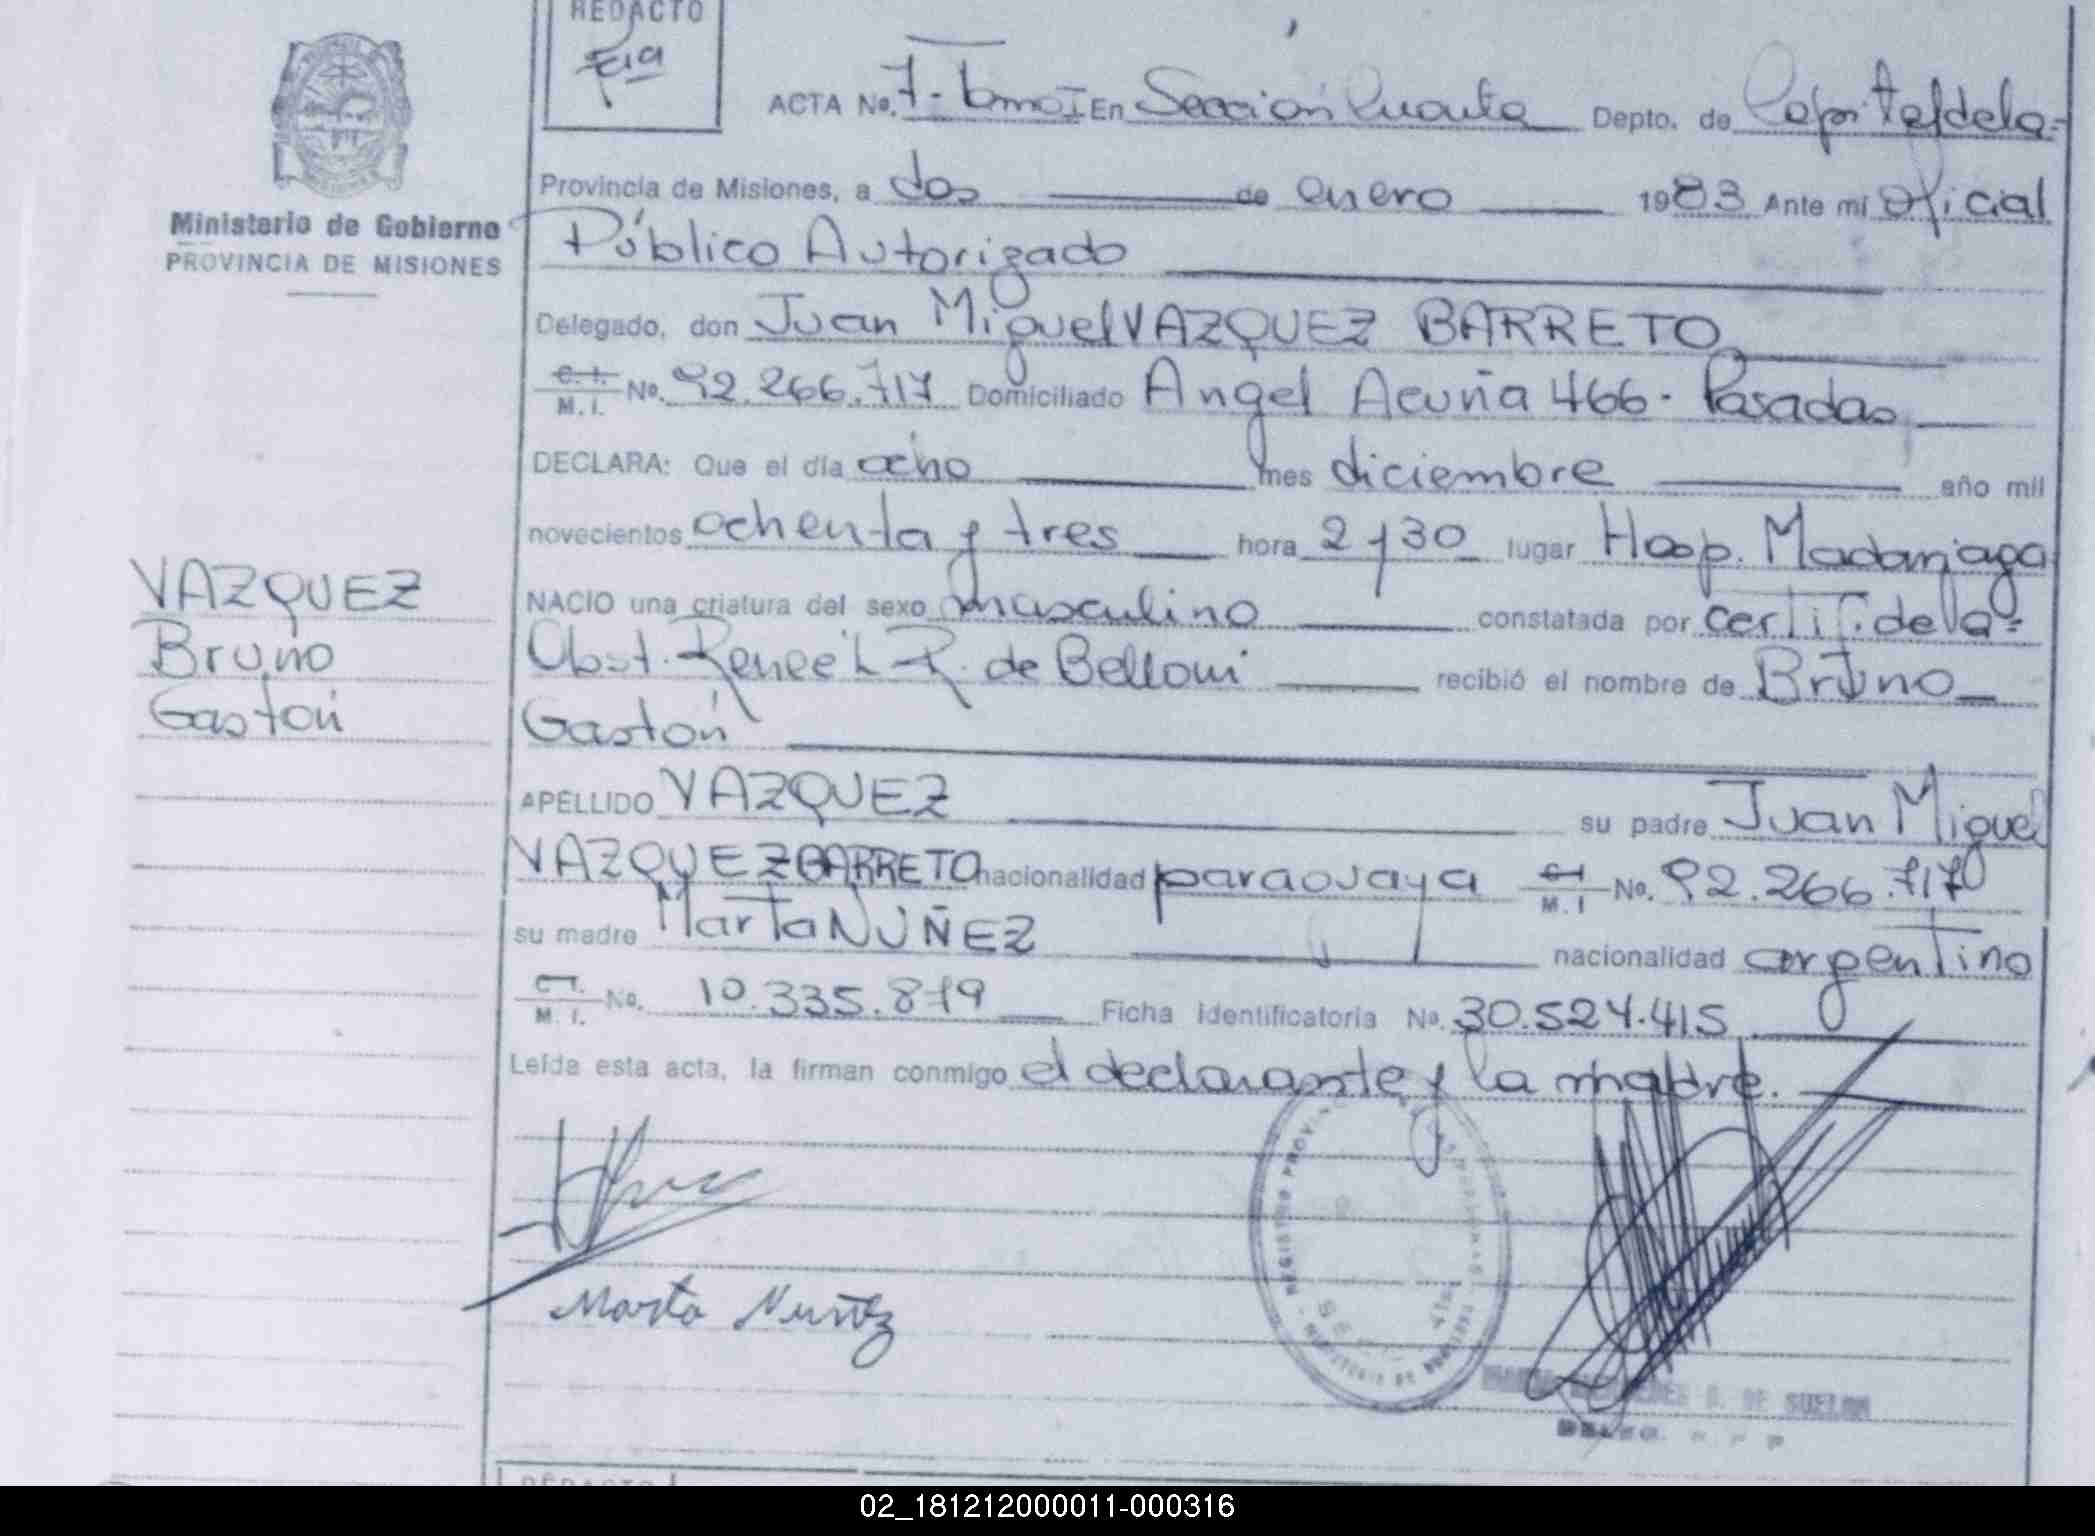 REDACTO
ACTA No. 7 - Tomo I En Sección Cuarta Depto. de Capital de la-
Provincia de Misiones, a dos de enero 1983 Ante mi Oficial
Ministerio de Gobierno
PROVINCIA DE MISIONES
Público Autorizado
Delegado, don Juan Miguel VAZQUEZ BARRETO
C.I. M.I. No. 92.266.717 Domiciliado Angel Acuña 466 - Posadas
DECLARA: Que el día ocho mes diciembre año mil
novecientos ochenta y tres hora 2 y 30 lugar Hosp. Madariaga
NACIO una criatura del sexo masculino constatada por certif. de la-
Obst. Renee L R. de Belloni recibió el nombre de Bruno
Gastón
VAZQUEZ
Bruno
Gastón
APELLIDO VAZQUEZ su padre Juan Miguel
VAZQUEZ BARRETO nacionalidad paraguaya C.I. M.I No. 92.266.717
su madre Marta NUÑEZ nacionalidad argentino
C.I. M.I. No. 10.335.879 Ficha identificatoria No. 30.524.415
Leída esta acta, la firman conmigo el declarante y la madre.
Marta Nuñez
REGISTRO PROV.
DE SUELDM
REDACTO
02_181212000011-000316